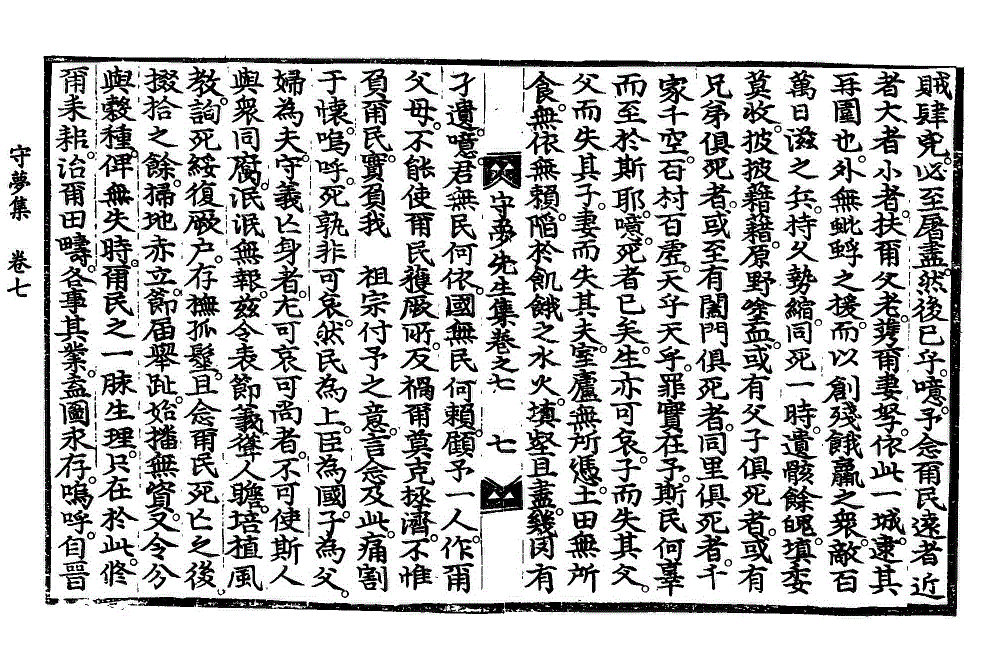 賊肆兇。必至屠盡。然後已乎。噫。予念爾民。遠者近
者大者小者。扶爾父老。携爾妻孥。依此一城。逮其
再圍也。外無蚍蜉之援。而以創殘餓羸之衆。敵百
萬日滋之兵。持久勢縮。同死一時。遺骸餘魄。塡委
莫收。披披藉藉。原野塗血。或有父子俱死者。或有
兄弟俱死者。或至有闔門俱死者。同里俱死者。千
家千空。百村百虛。天乎天乎。罪實在予。斯民何辜
而至於斯耶。噫。死者已矣。生亦可哀。子而失其父。
父而失其子。妻而失其夫。室廬無所憑。土田無所
食。無依無賴。陷於飢餓之水火。塡壑且盡。幾罔有
守夢先生集卷之七　七
孑遺。噫。君無民何依。國無民何賴。顧予一人。作爾
父母。不能使爾民獲厥所。及禍爾莫克拯濟。不惟
負爾民。實負我　祖宗付予之意。言念及此。痛割
于懷。嗚呼。死孰非可哀。然民爲上。臣爲國。子爲父。
婦爲夫。守義亡身者。尤可哀可尙者。不可使斯人
與衆同腐。泯泯無報。玆令表節義。聳人瞻。培植風
敎。詢死綏復厥户。存撫孤嫠。且念爾民死亡之後。
掇拾之餘。掃地亦立。節屆擧趾。始播無實。又令分
與穀種。俾無失時。爾民之一脉生理。只在於此。修
爾耒耜。治爾田疇。各事其業。益圖永存。嗚呼。自晉
守夢集　卷七